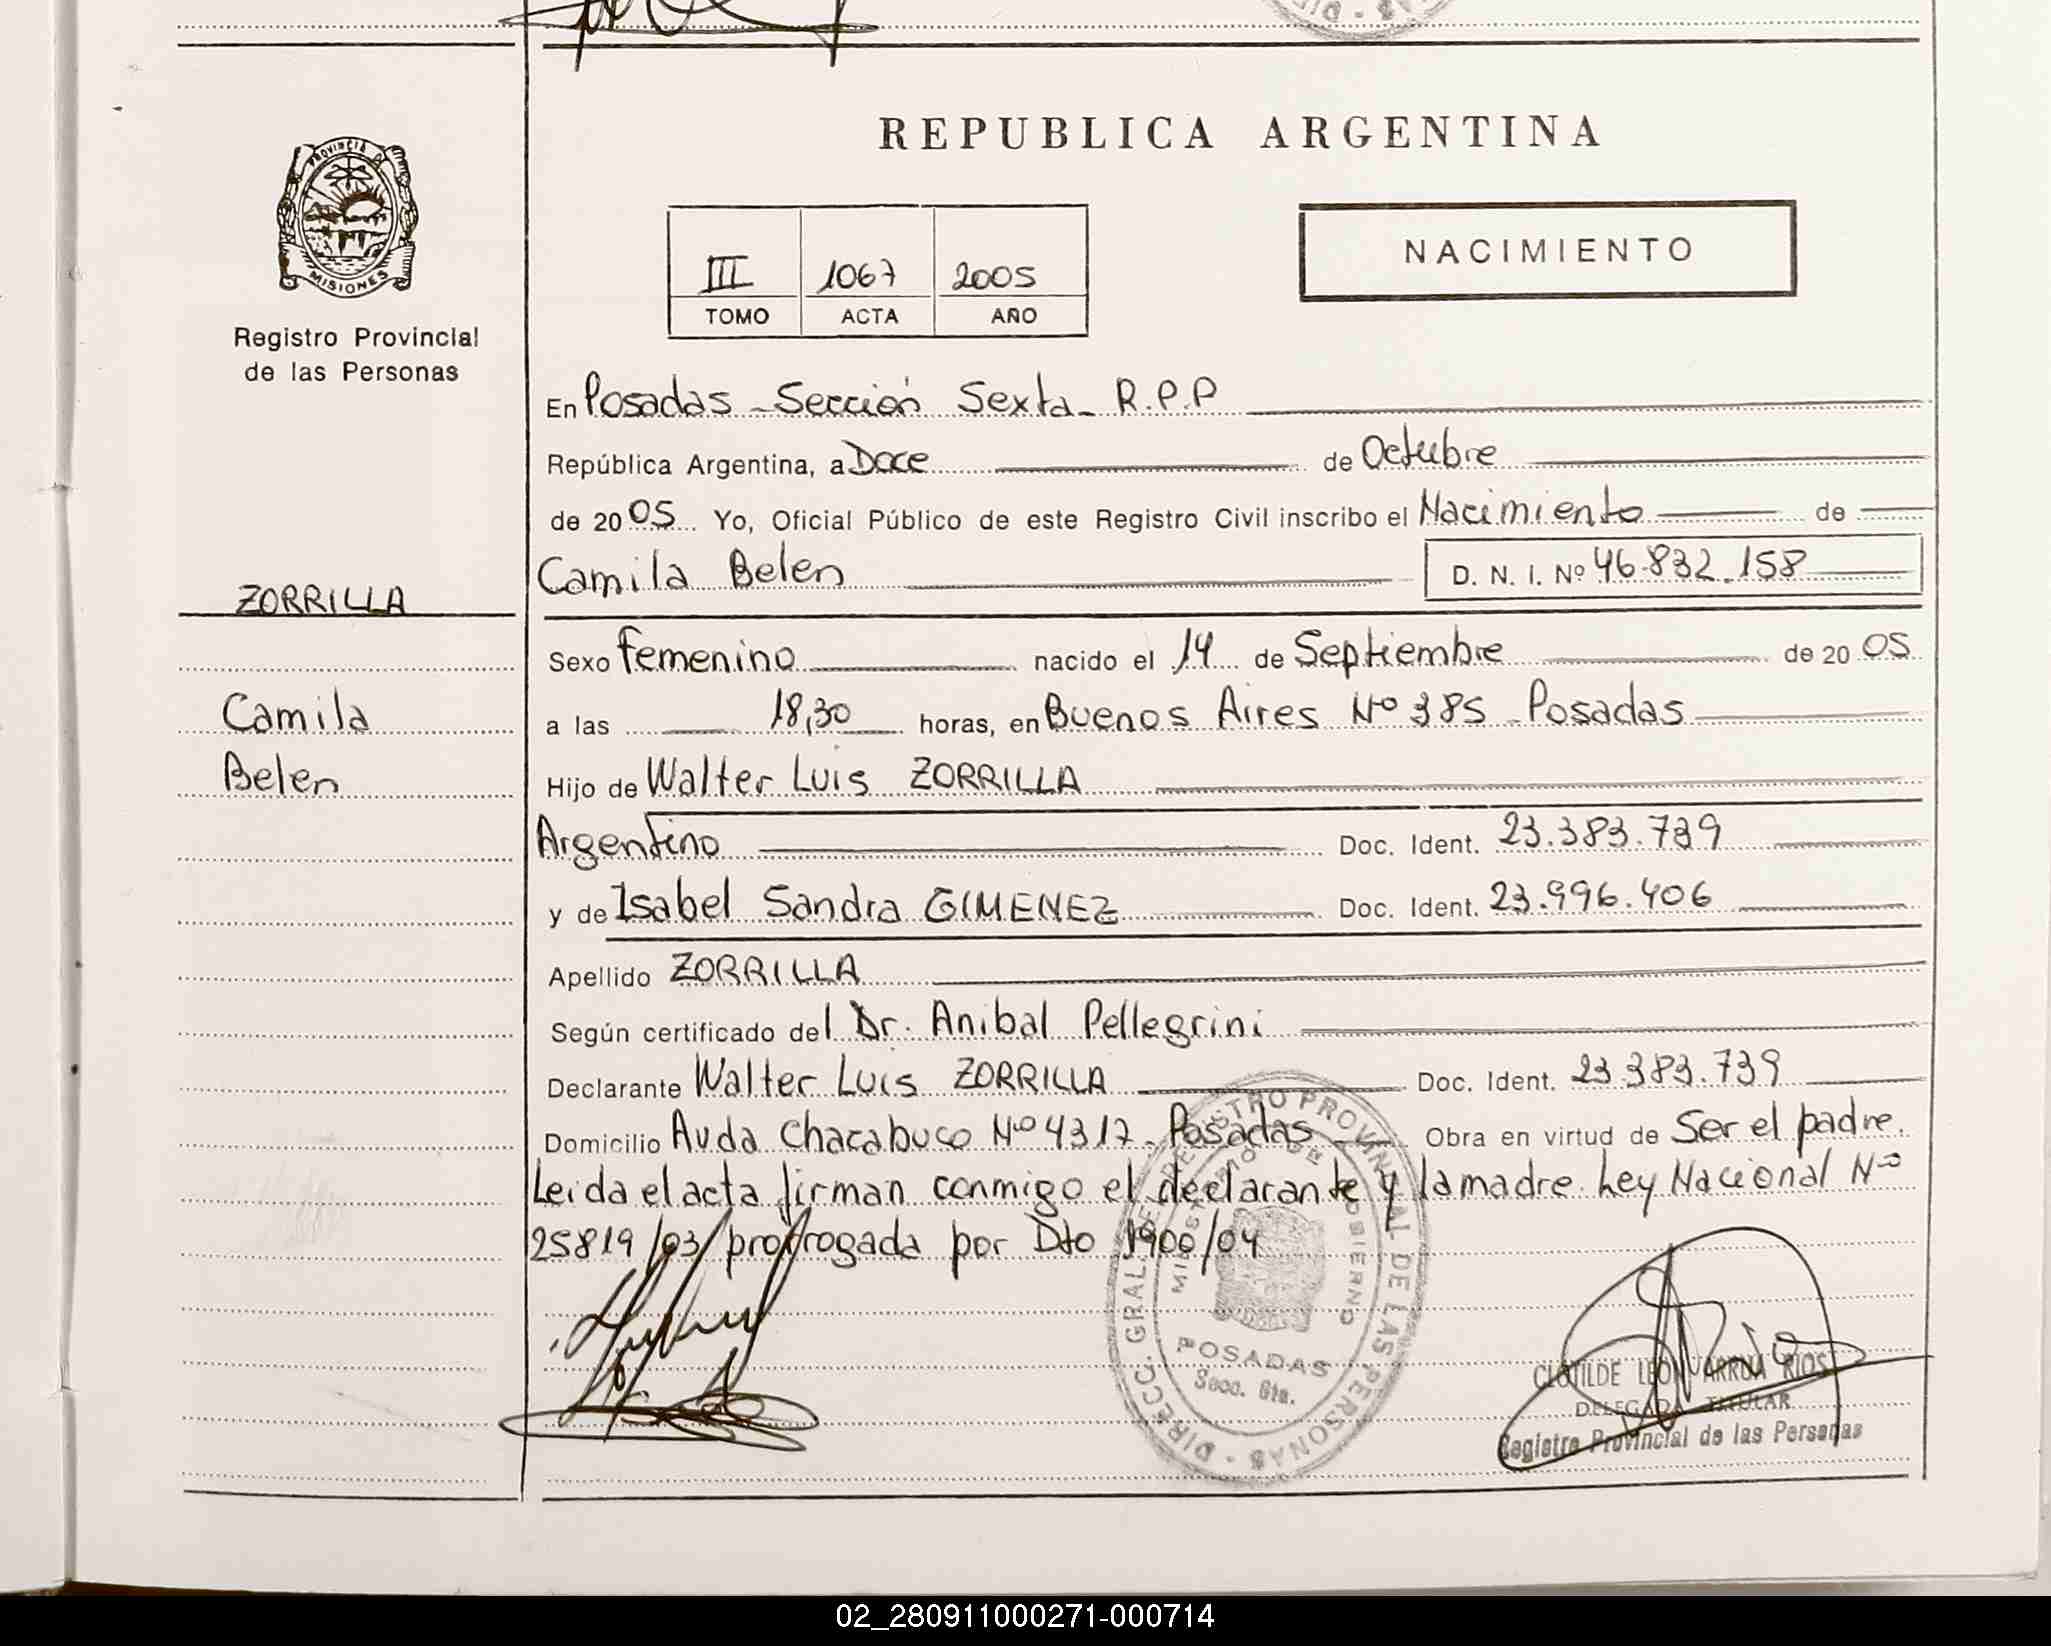 REPUBLICA ARGENTINA
PROVINCIA DE MISIONES
Registro Provincial
de las Personas
III 1067 2005
TOMO ACTA AÑO
NACIMIENTO
En Posadas - Sección Sexta - R.P.P
República Argentina, a Doce de Octubre
de 2005 Yo, Oficial Público de este Registro Civil inscribo el Nacimiento de
Camila Belen D. N. I. Nº 46.832.158
ZORRILLA
Camila
Belen
Sexo femenino nacido el 14 de Septiembre de 2005
a las 18,30 horas, en Buenos Aires Nº 385 - Posadas
Hijo de Walter Luis ZORRILLA
Argentino Doc. Ident. 23.383.739
y de Isabel Sandra GIMENEZ Doc. Ident. 23.996.406
Apellido ZORRILLA
Según certificado del Dr. Anibal Pellegrini
Declarante Walter Luis ZORRILLA Doc. Ident. 23.383.739
Domicilio Avda Chacabuco Nº 4317 - Posadas Obra en virtud de Ser el padre.
Leida el acta firman conmigo el declarante y la madre. Ley Nacional Nº
25819/03/prorrogada por Dto 1900/04
DIRECC. GRAL. DE REGISTRO PROVINCIAL DE LAS PERSONAS
MINISTERIO DE GOBIERNO
POSADAS
Secc. 6ta.
CLOTILDE RIOS
DELEGADA TITULAR
Registro Provincial de las Personas
02_280911000271-000714